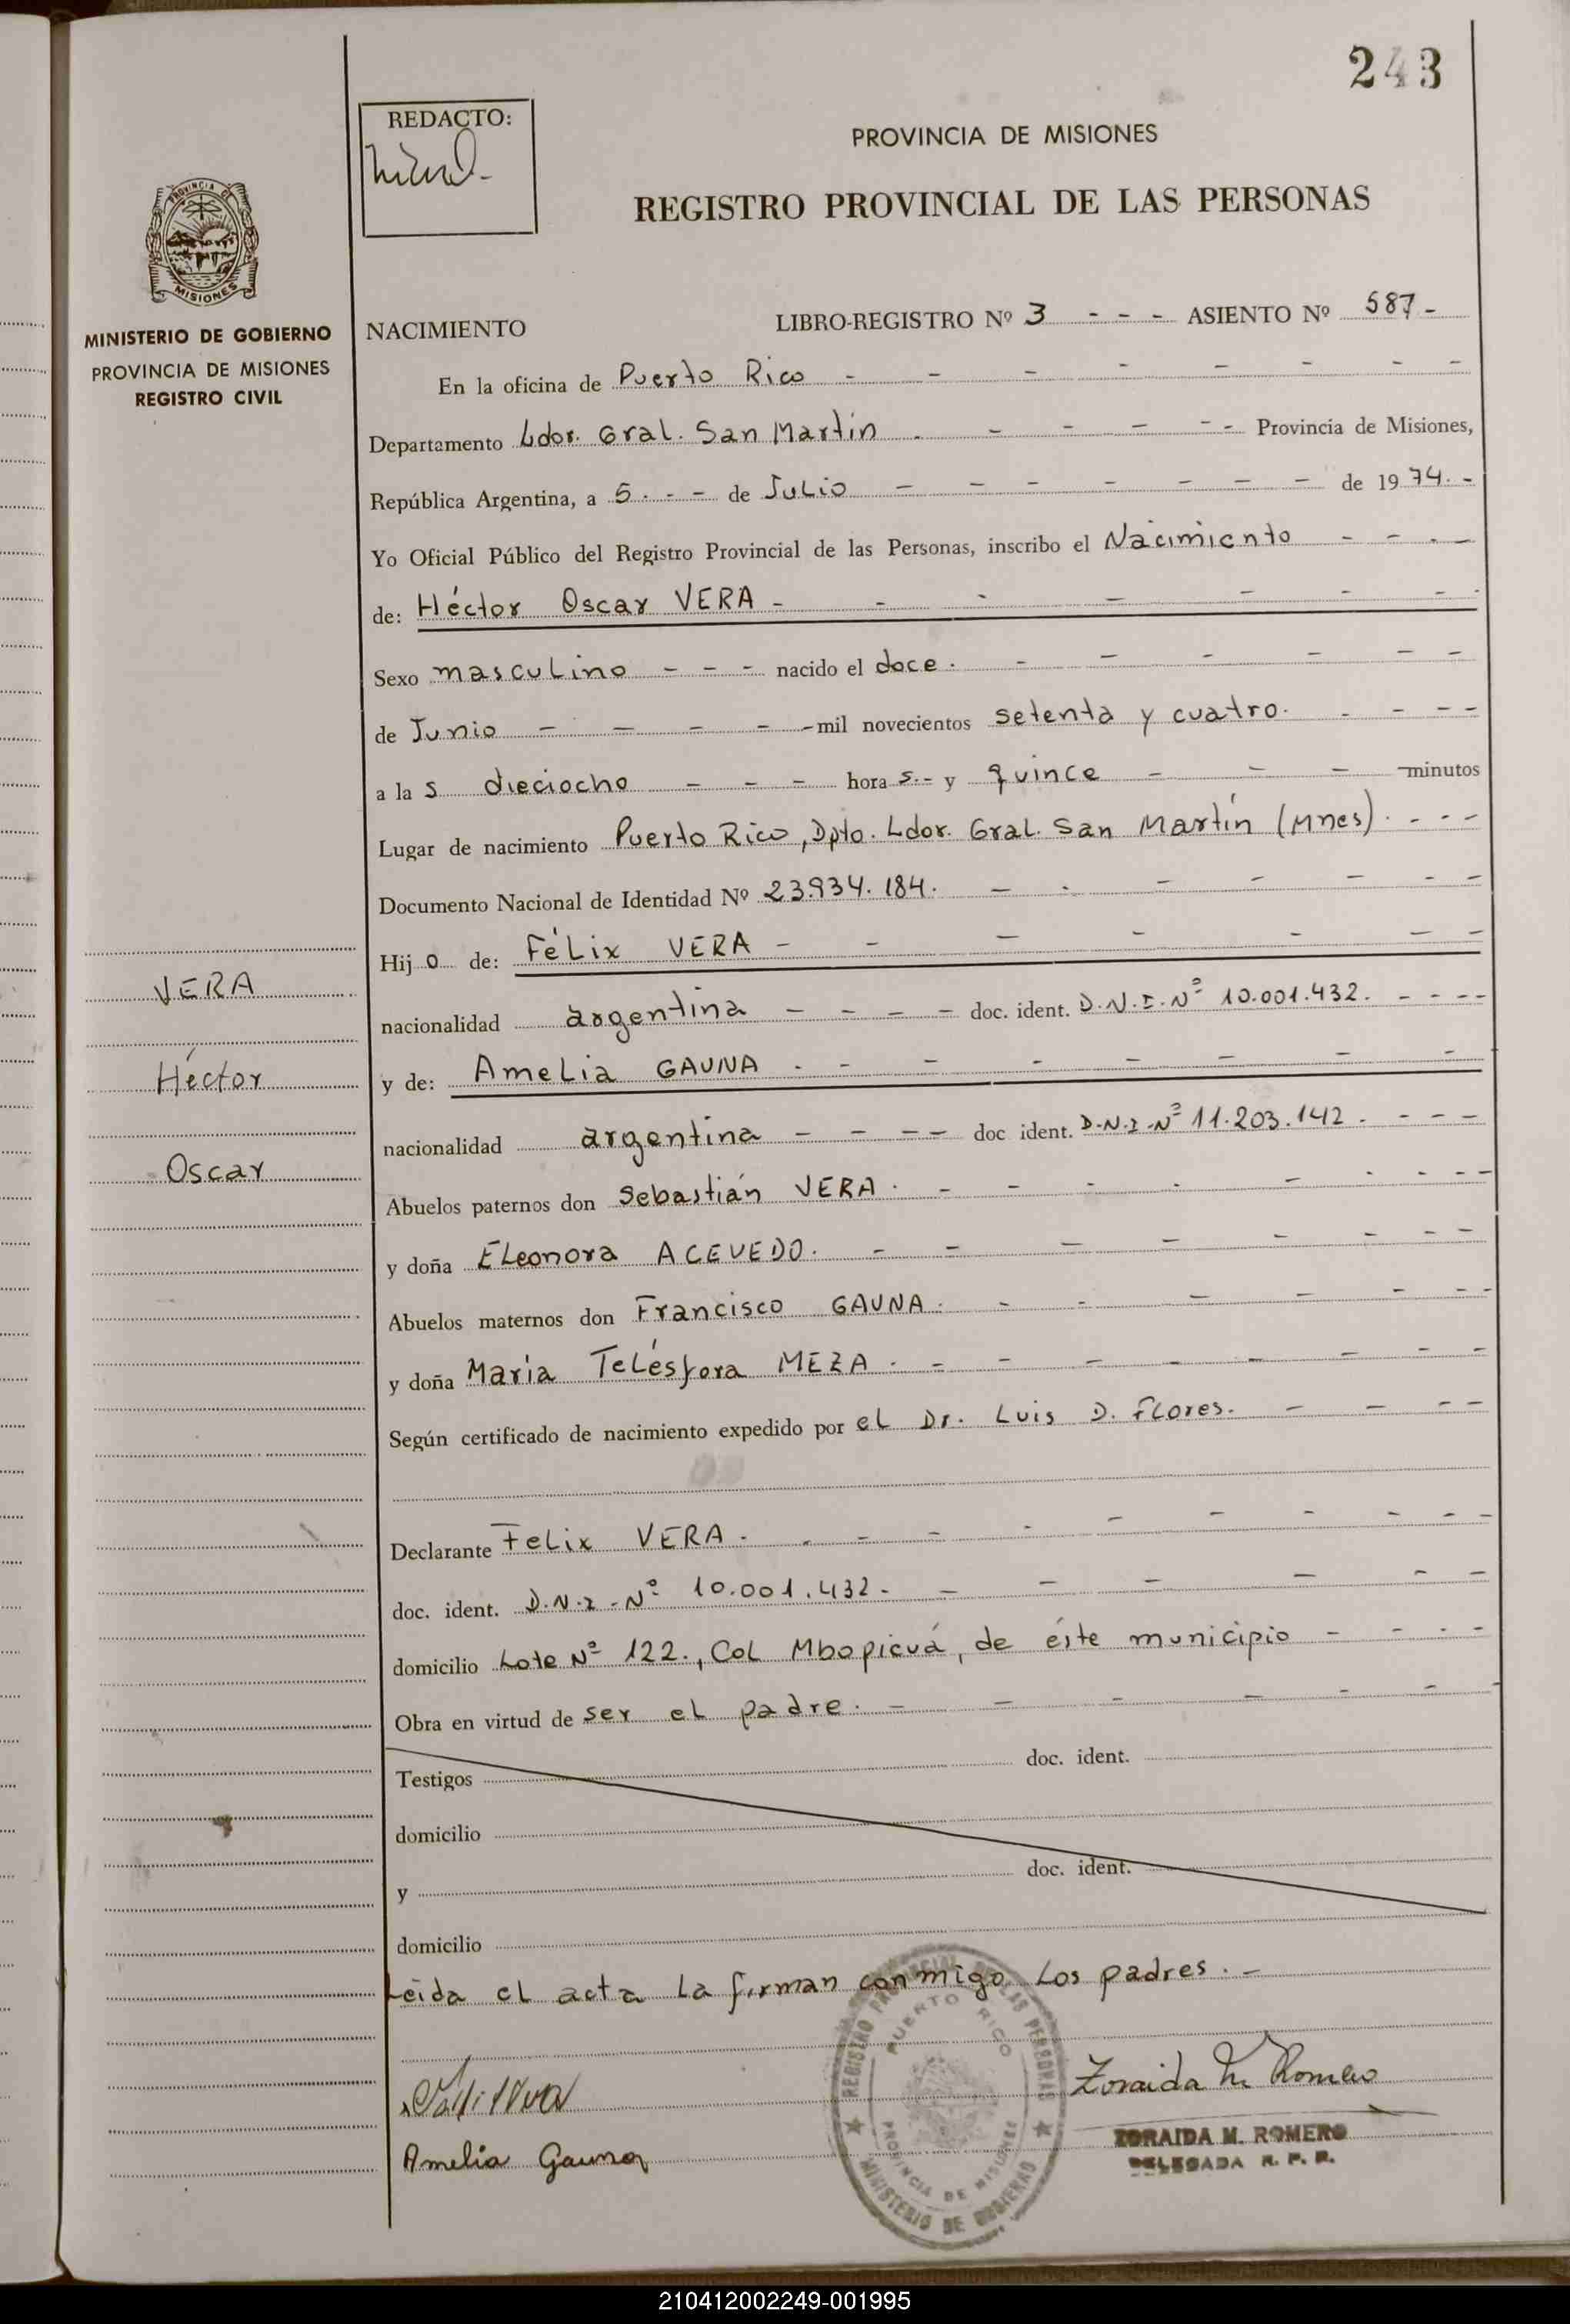 243
REDACTO:
PROVINCIA DE MISIONES
REGISTRO PROVINCIAL DE LAS PERSONAS
PROVINCIA DE
MISIONES
MINISTERIO DE GOBIERNO
PROVINCIA DE MISIONES
REGISTRO CIVIL
NACIMIENTO LIBRO-REGISTRO Nº 3 - - - ASIENTO Nº 587 -
En la oficina de Puerto Rico - - - - - - - -
Departamento Ldor. Gral. San Martín . - - - - - Provincia de Misiones,
República Argentina, a 5. - - de Julio - - - - - - - de 1974. -
Yo Oficial Público del Registro Provincial de las Personas, inscribo el Nacimiento - - . -
de: Héctor Oscar VERA - - - - - - -
Sexo masculino - - - nacido el doce . - - - - - -
de Junio - - - - - mil novecientos setenta y cuatro. - - - -
a la s dieciocho - - - hora s.- y quince - - - minutos
Lugar de nacimiento Puerto Rico, Dpto. Ldor. Gral. San Martín (Mnes) . - - -
Documento Nacional de Identidad Nº 23.934.184. - - - - - - -
Hijo de: Félix VERA - - - - - - -
VERA
nacionalidad argentina - - - - doc. ident. D.N.I. Nº 10.001.432. - - - -
Héctor
y de: Amelia GAUNA . - - - - - - -
nacionalidad argentina - - - - doc ident. D.N.I. Nº 11.203.142 . - - -
Oscar
Abuelos paternos don Sebastián VERA . - - - - - - - - -
y doña Eleonora ACEVEDO. - - - - - - - -
Abuelos maternos don Francisco GAUNA . - - - - - - -
y doña María Telésfora MEZA . - - - - - - - -
Según certificado de nacimiento expedido por el Dr. Luis D. Flores. - - - -
Declarante Felix VERA . - - - - - - - - -
doc. ident. D.N.I. Nº 10.001.432 - - - - - - -
domicilio Lote Nº 122., Col Mbopicuá, de éste municipio - - - -
Obra en virtud de ser el padre . - - - - - -
Testigos doc. ident.
domicilio
y doc. ident.
domicilio
Leida el acta la firman conmigo Los padres . -
REGISTRO PROVINCIAL DE LAS PERSONAS
PUERTO RICO
PROVINCIA DE MISIONES
MINISTERIO DE GOBIERNO
Zoraida M. Romero
Amelia Gauna
ZORAIDA M. ROMERO
DELEGADA R. P. P.
210412002249-001995